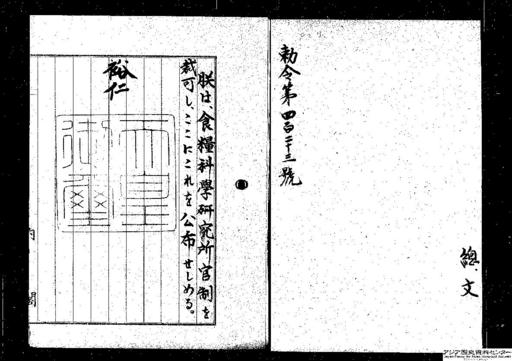 勅令第四百二十三號
總、文
朕は、食糧科學研究所官制を
裁可し、ここにこれを公布せしめる。
裕仁
天皇
御璽
内 閣
アジア歴史資料センター